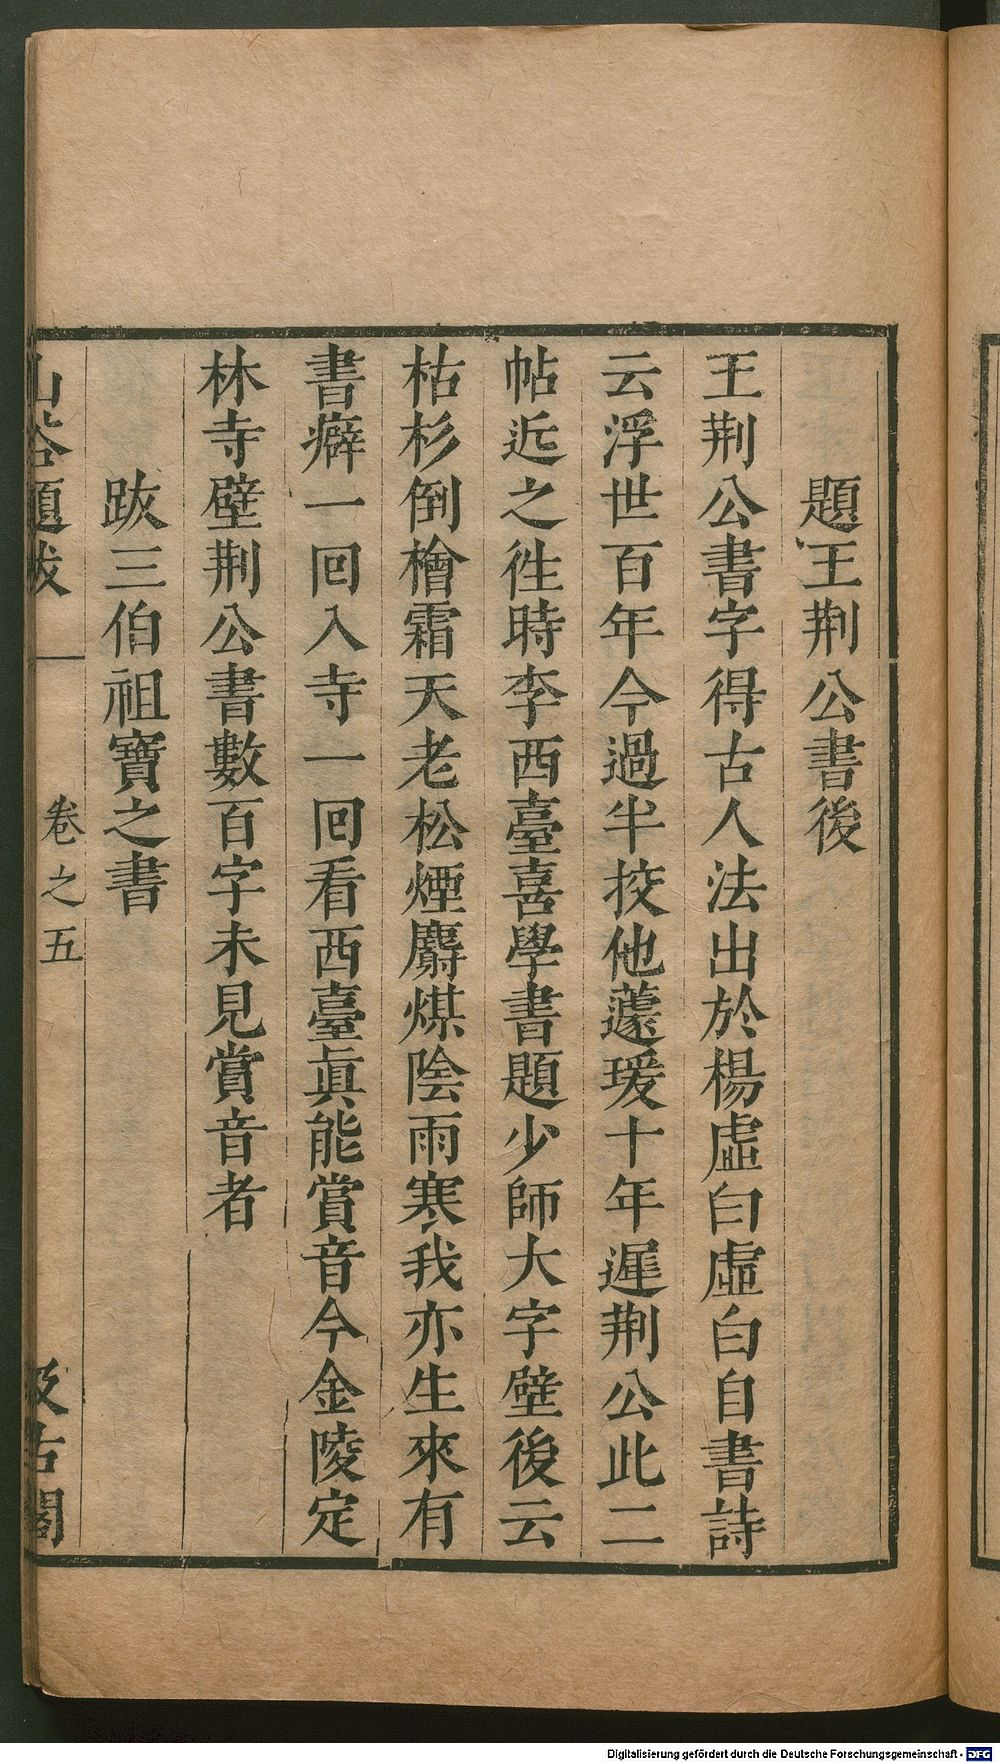 題王荆公書後
王荆公書字得古人法出於楊虛白虛白自書詩
云浮世百年今過半挍他蘧瑗十年遲荆公此二
帖近之徃時李西臺喜學書題少師大字壁後云
枯杉倒檜霜天老松煙麝煤陰雨寒我亦生來有
書癖一回入寺一回看西臺眞能賞音今金陵定
林寺壁荆公書數百字未見賞音者
跋三伯祖寶之書
山谷題跋 卷之五 汲古閣
Digitalisierung gefördert durch die Deutsche Forschungsgemeinschaft - DFG